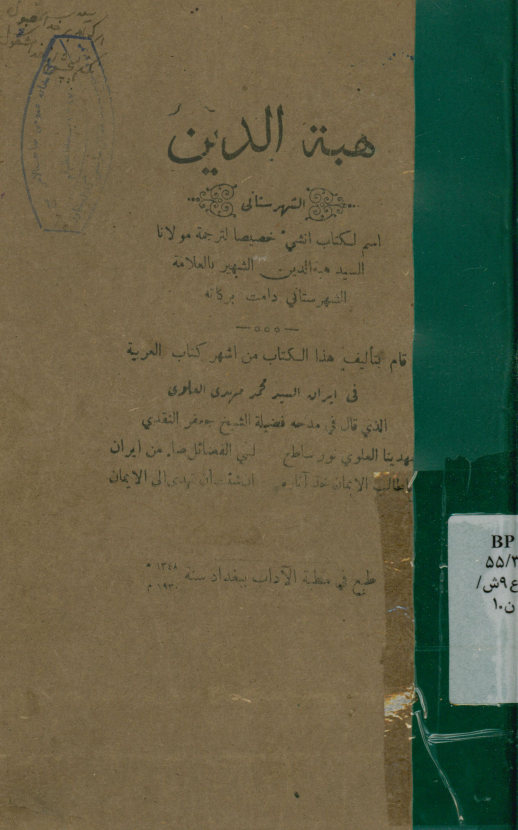 هبة الدين
الشهرستاني
اسم لكتاب انشيء خصيصا لترجمة مولانا
السيد هبةالدين الشهير بالعلامة
الشهرستاني دامت بركاته
قام بتأليف هذا الكتاب من اشهر كتاب العربية
في ايران السيد محمد مهدي العلوي
الذي قال في مدحه فضيلة الشيخ جعفر النقدي
مهدينا العلوي نور ساطع لبني الفضائل ضاء من ايران
ياطالب الايمان خذ آثاره ان شئت أن تهدى الى الايمان
طبع في مطبعة الآداب ببغداد سنة ١٣٤٨ ه
١٩٣٠ م
BP
٥٥/٣
ع٩ش/
ن١٠